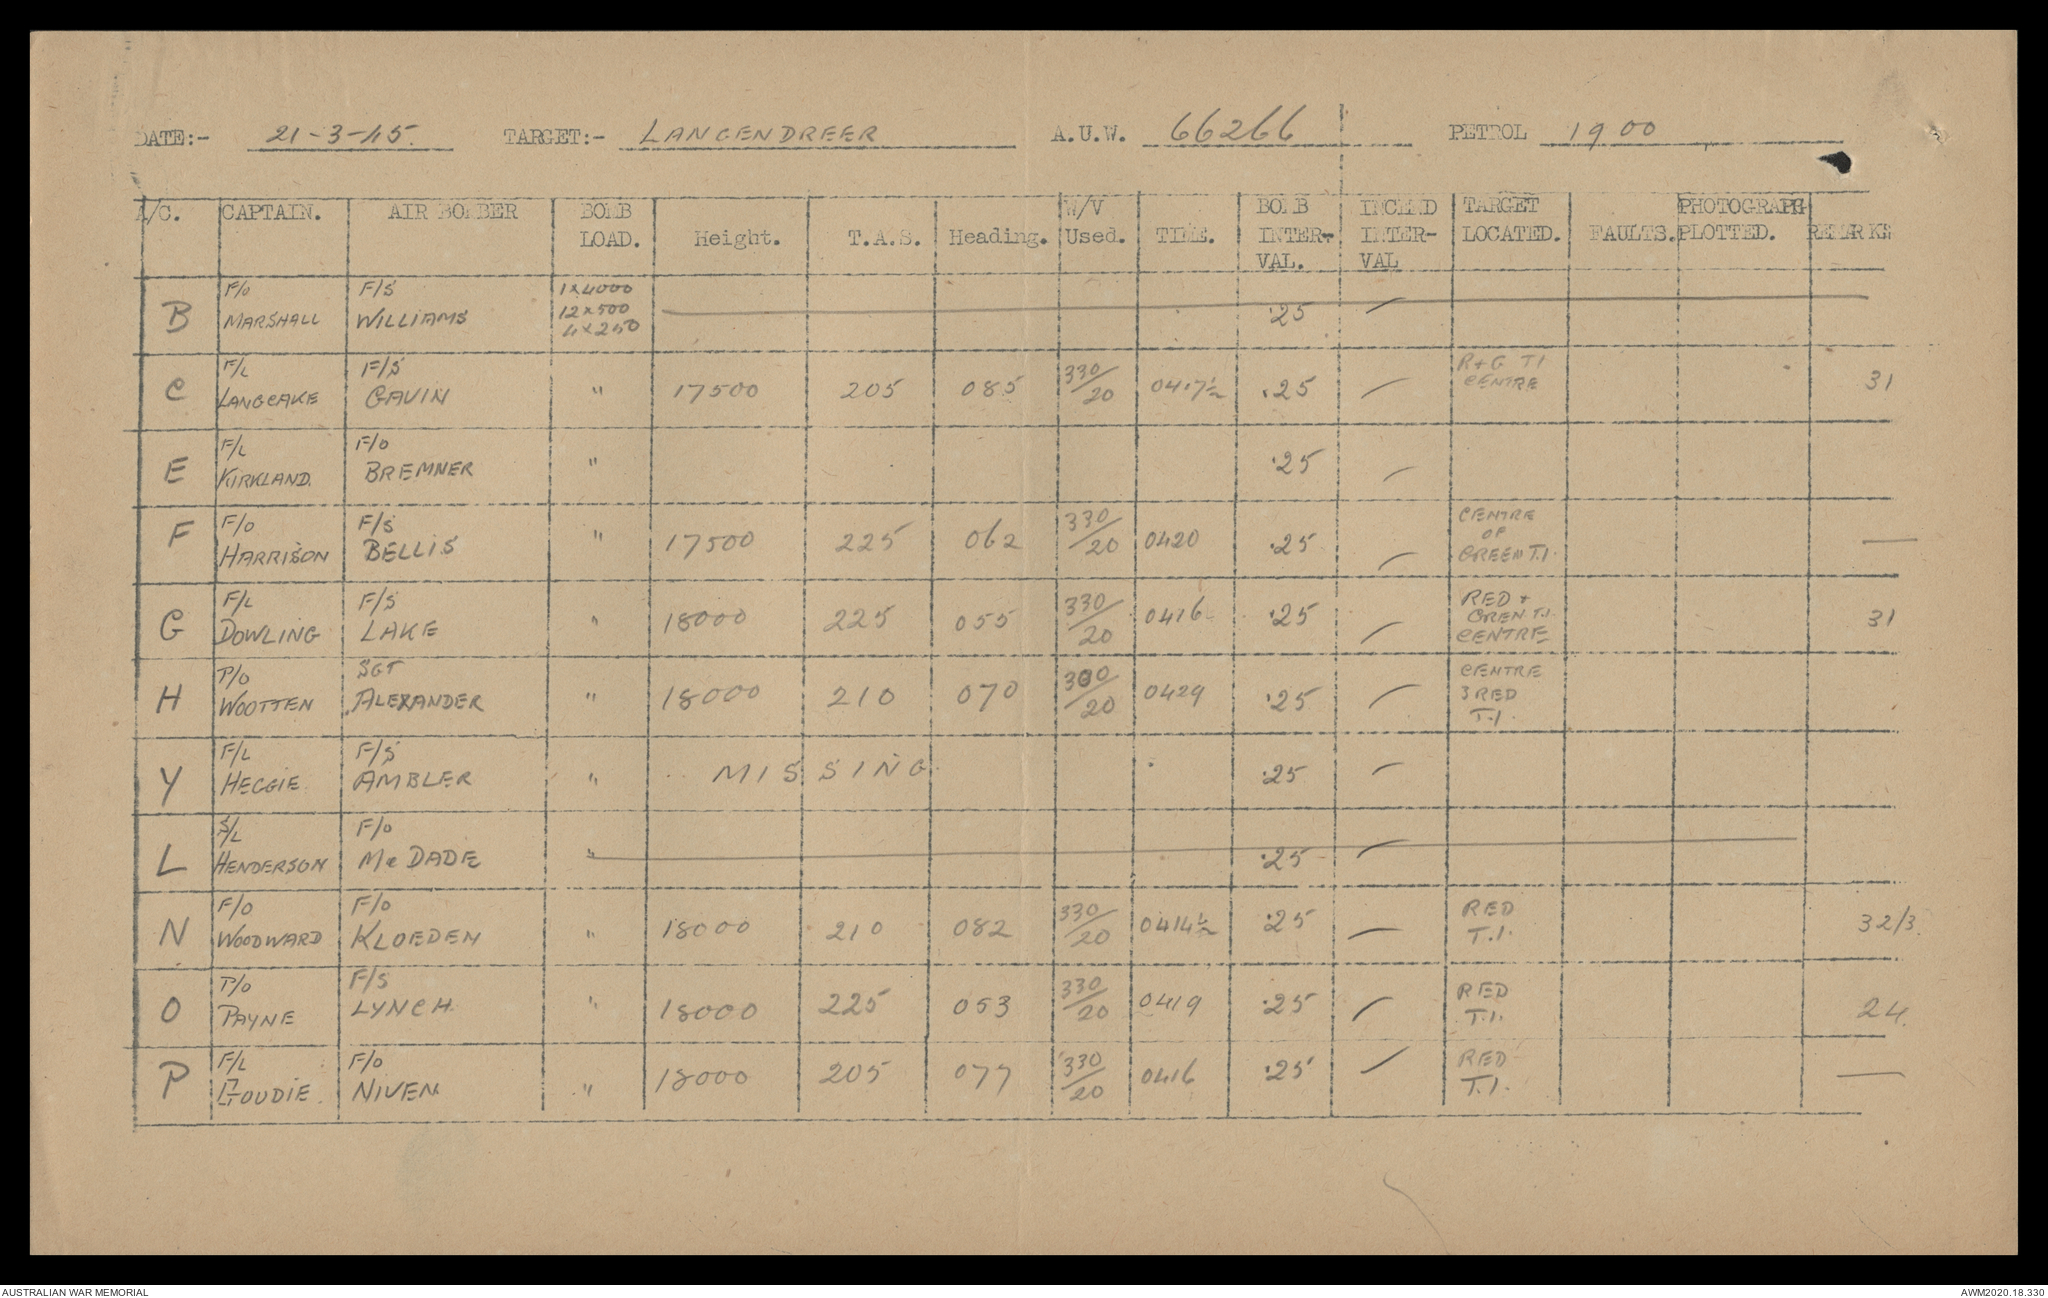 DATE:- 21-3-45. TARGET:- LANGENDREER A.U.W. 66266 PETROL 1900
A/C. CAPTAIN. AIR BOMBER BOMB LOAD. Height. T.A.S. Heading. W/V Used. TIME. BOMB INTER-VAL. INCEND INTER-VAL TARGET LOCATED. FAULTS. PHOTOGRAPH PLOTTED. REMARKS
B F/O MARSHALL F/S WILLIAMS 1x4000 12x500 4x250 .25 —
C F/L LANGCAKE F/S GAVIN " 17500 205 085 330/20 0417½ .25 — R+G T.I CENTRE 31
E F/L KIRKLAND. F/O BREMNER " .25 —
F F/O HARRISON F/S BELLIS " 17500 225 062 330/20 0420 .25 — CENTRE OF GREEN T.I. —
G F/L DOWLING F/S LAKE " 18000 225 055 330/20 0416 .25 — RED + GREN T.I. CENTRE 31
H P/O WOOTTEN SGT ALEXANDER " 18000 210 070 330/20 0429 .25 — CENTRE 3 RED T.I.
Y F/L HEGGIE F/S AMBLER " MISSING .25 —
L S/L HENDERSON F/O McDADE " .25 —
N F/O WOODWARD F/O KLOEDEN " 18000 210 082 330/20 0414½ .25 — RED T.I. 32/3.
O P/O PAYNE F/S LYNCH " 18000 225 053 330/20 0419 .25 — RED T.I. 24.
P F/L GOUDIE. F/O NIVEN " 18000 205 077 330/20 0416 .25 — RED T.I. —
AUSTRALIAN WAR MEMORIAL AWM2020.18.330